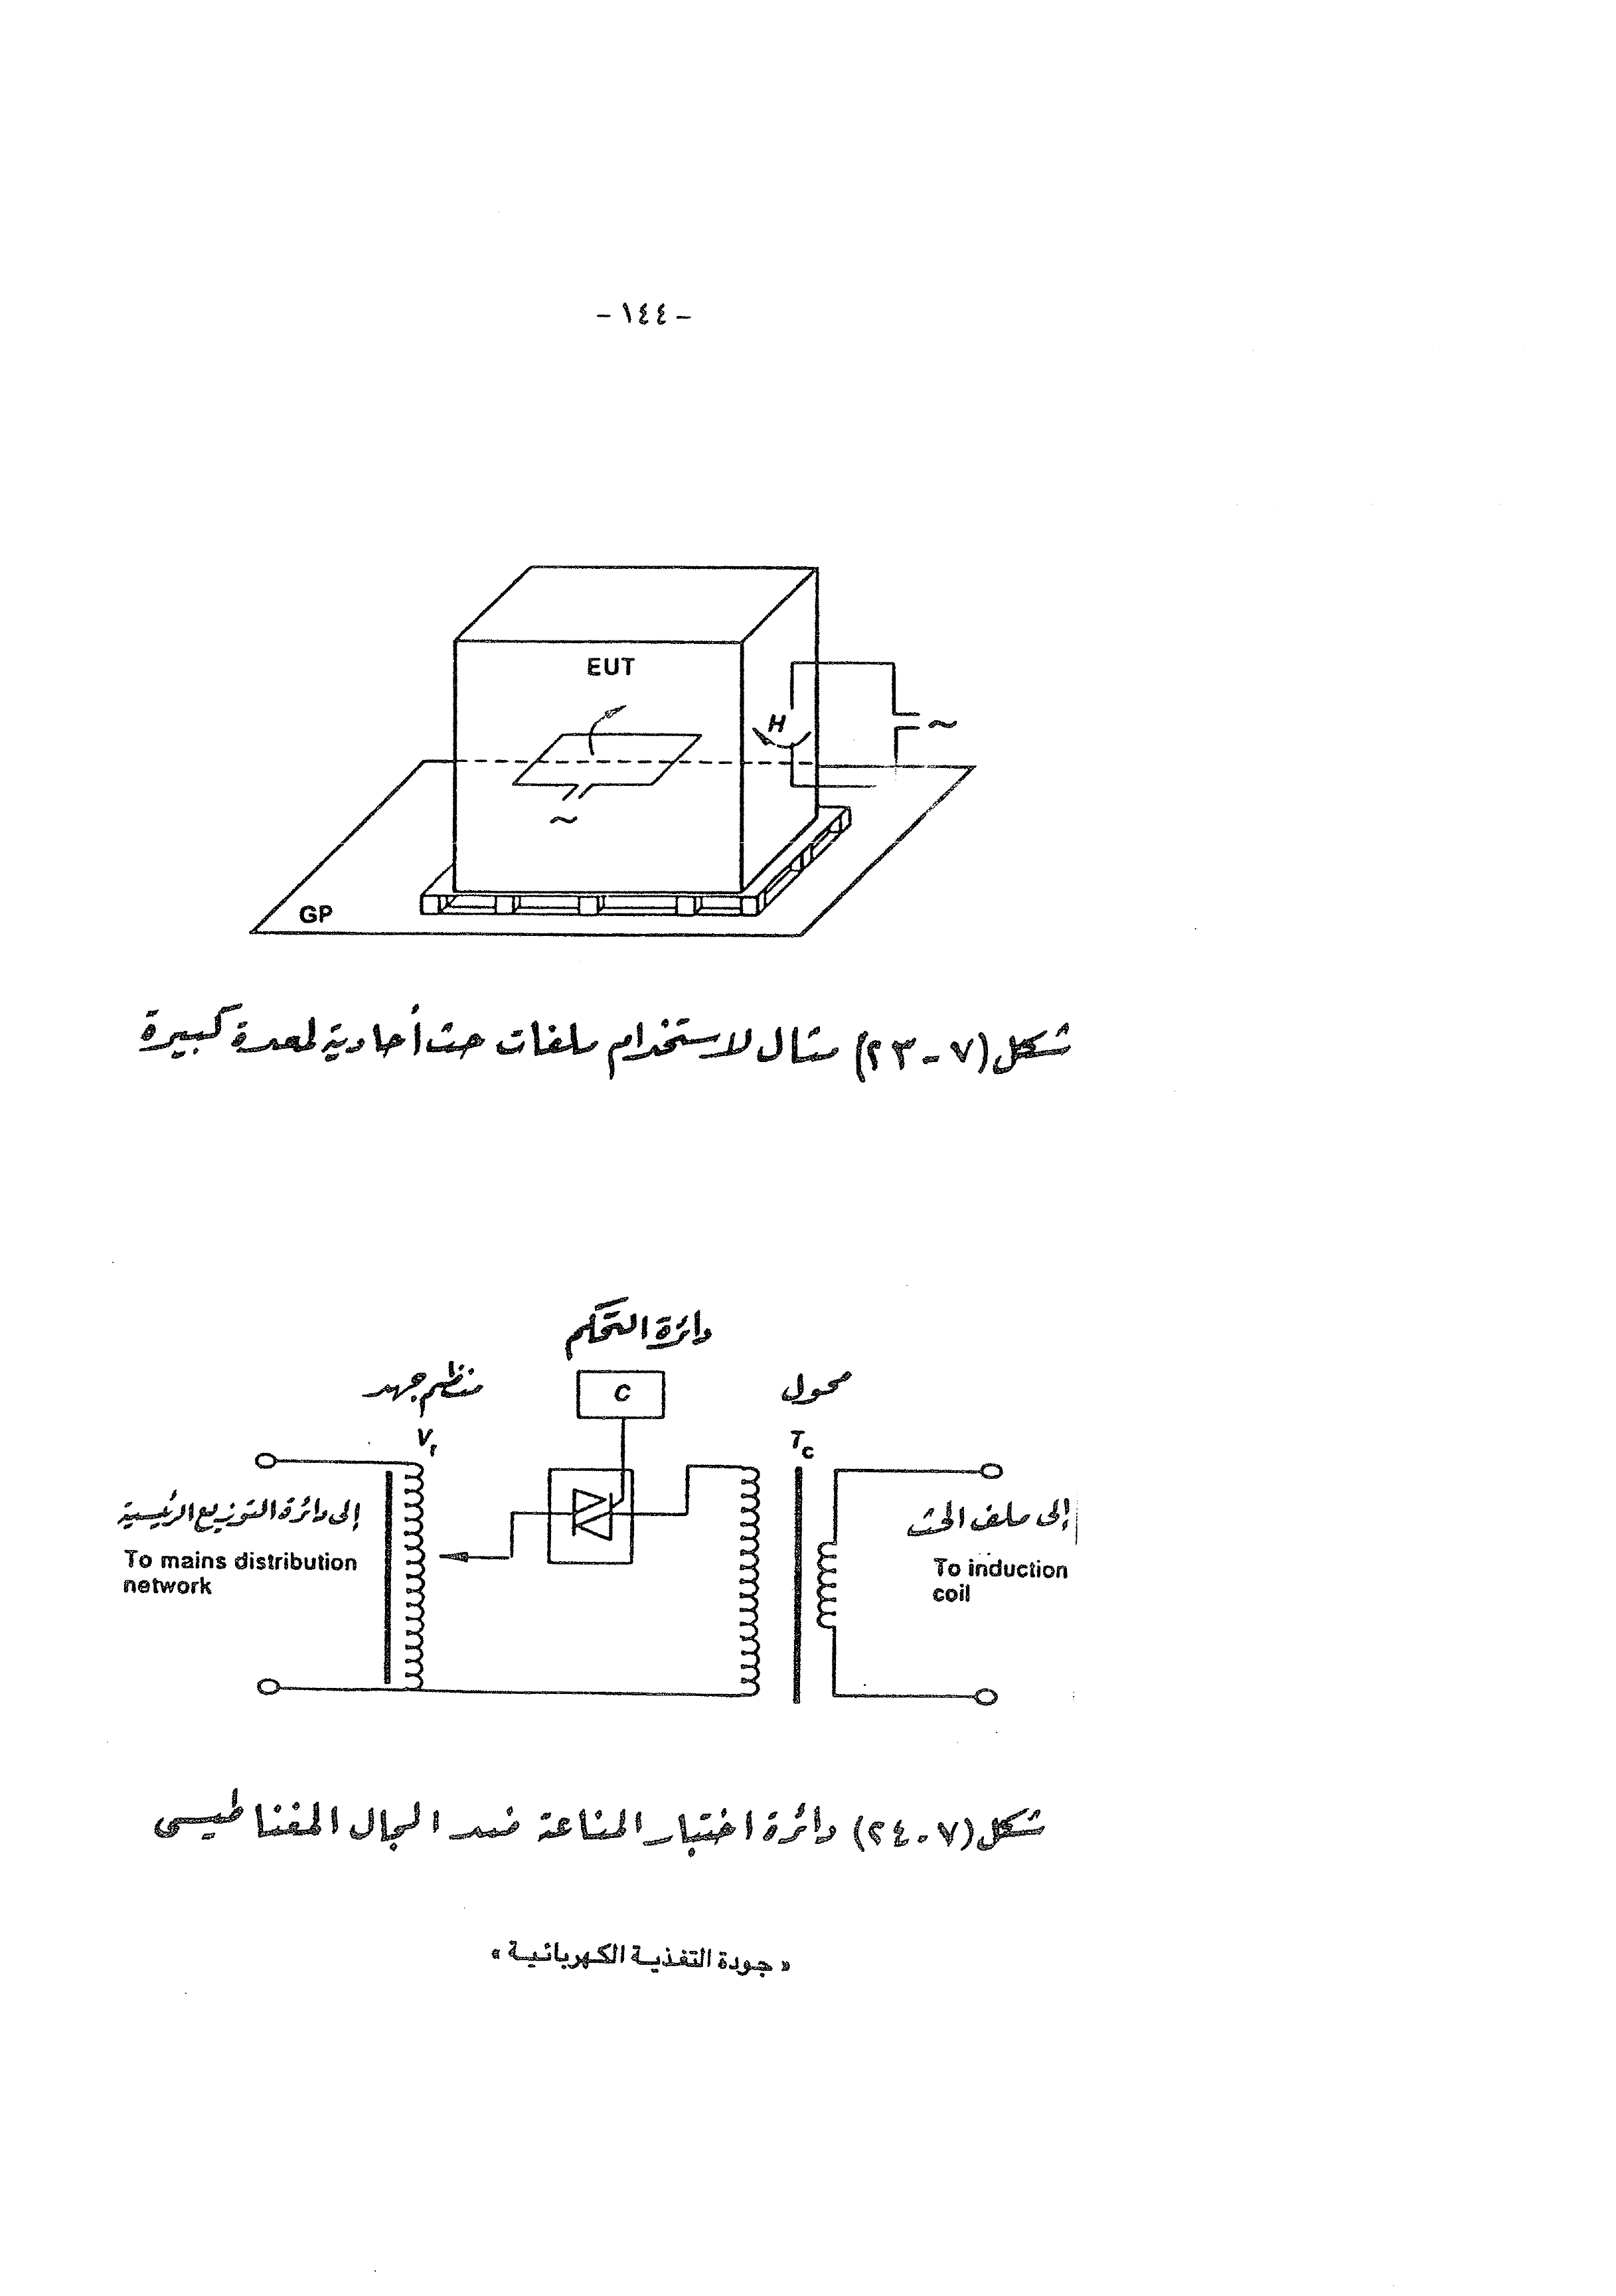 - ١٤٤ -
EUT
H
~
~
GP
شكل (٧ - ٢٣) مثال لاستخدام ملفات حث أحادية لمعدة كبيرة
دائرة التحكم
منظم جهد
C
محول
Vr
Tc
إلى دائرة التوزيع الرئيسية
إلى ملف الحث
To mains distribution
network
To induction
coil
شكل (٧ - ٢٤) دائرة اختبار المناعة ضد المجال المغناطيسى
« جودة التغذية الكهربائية »